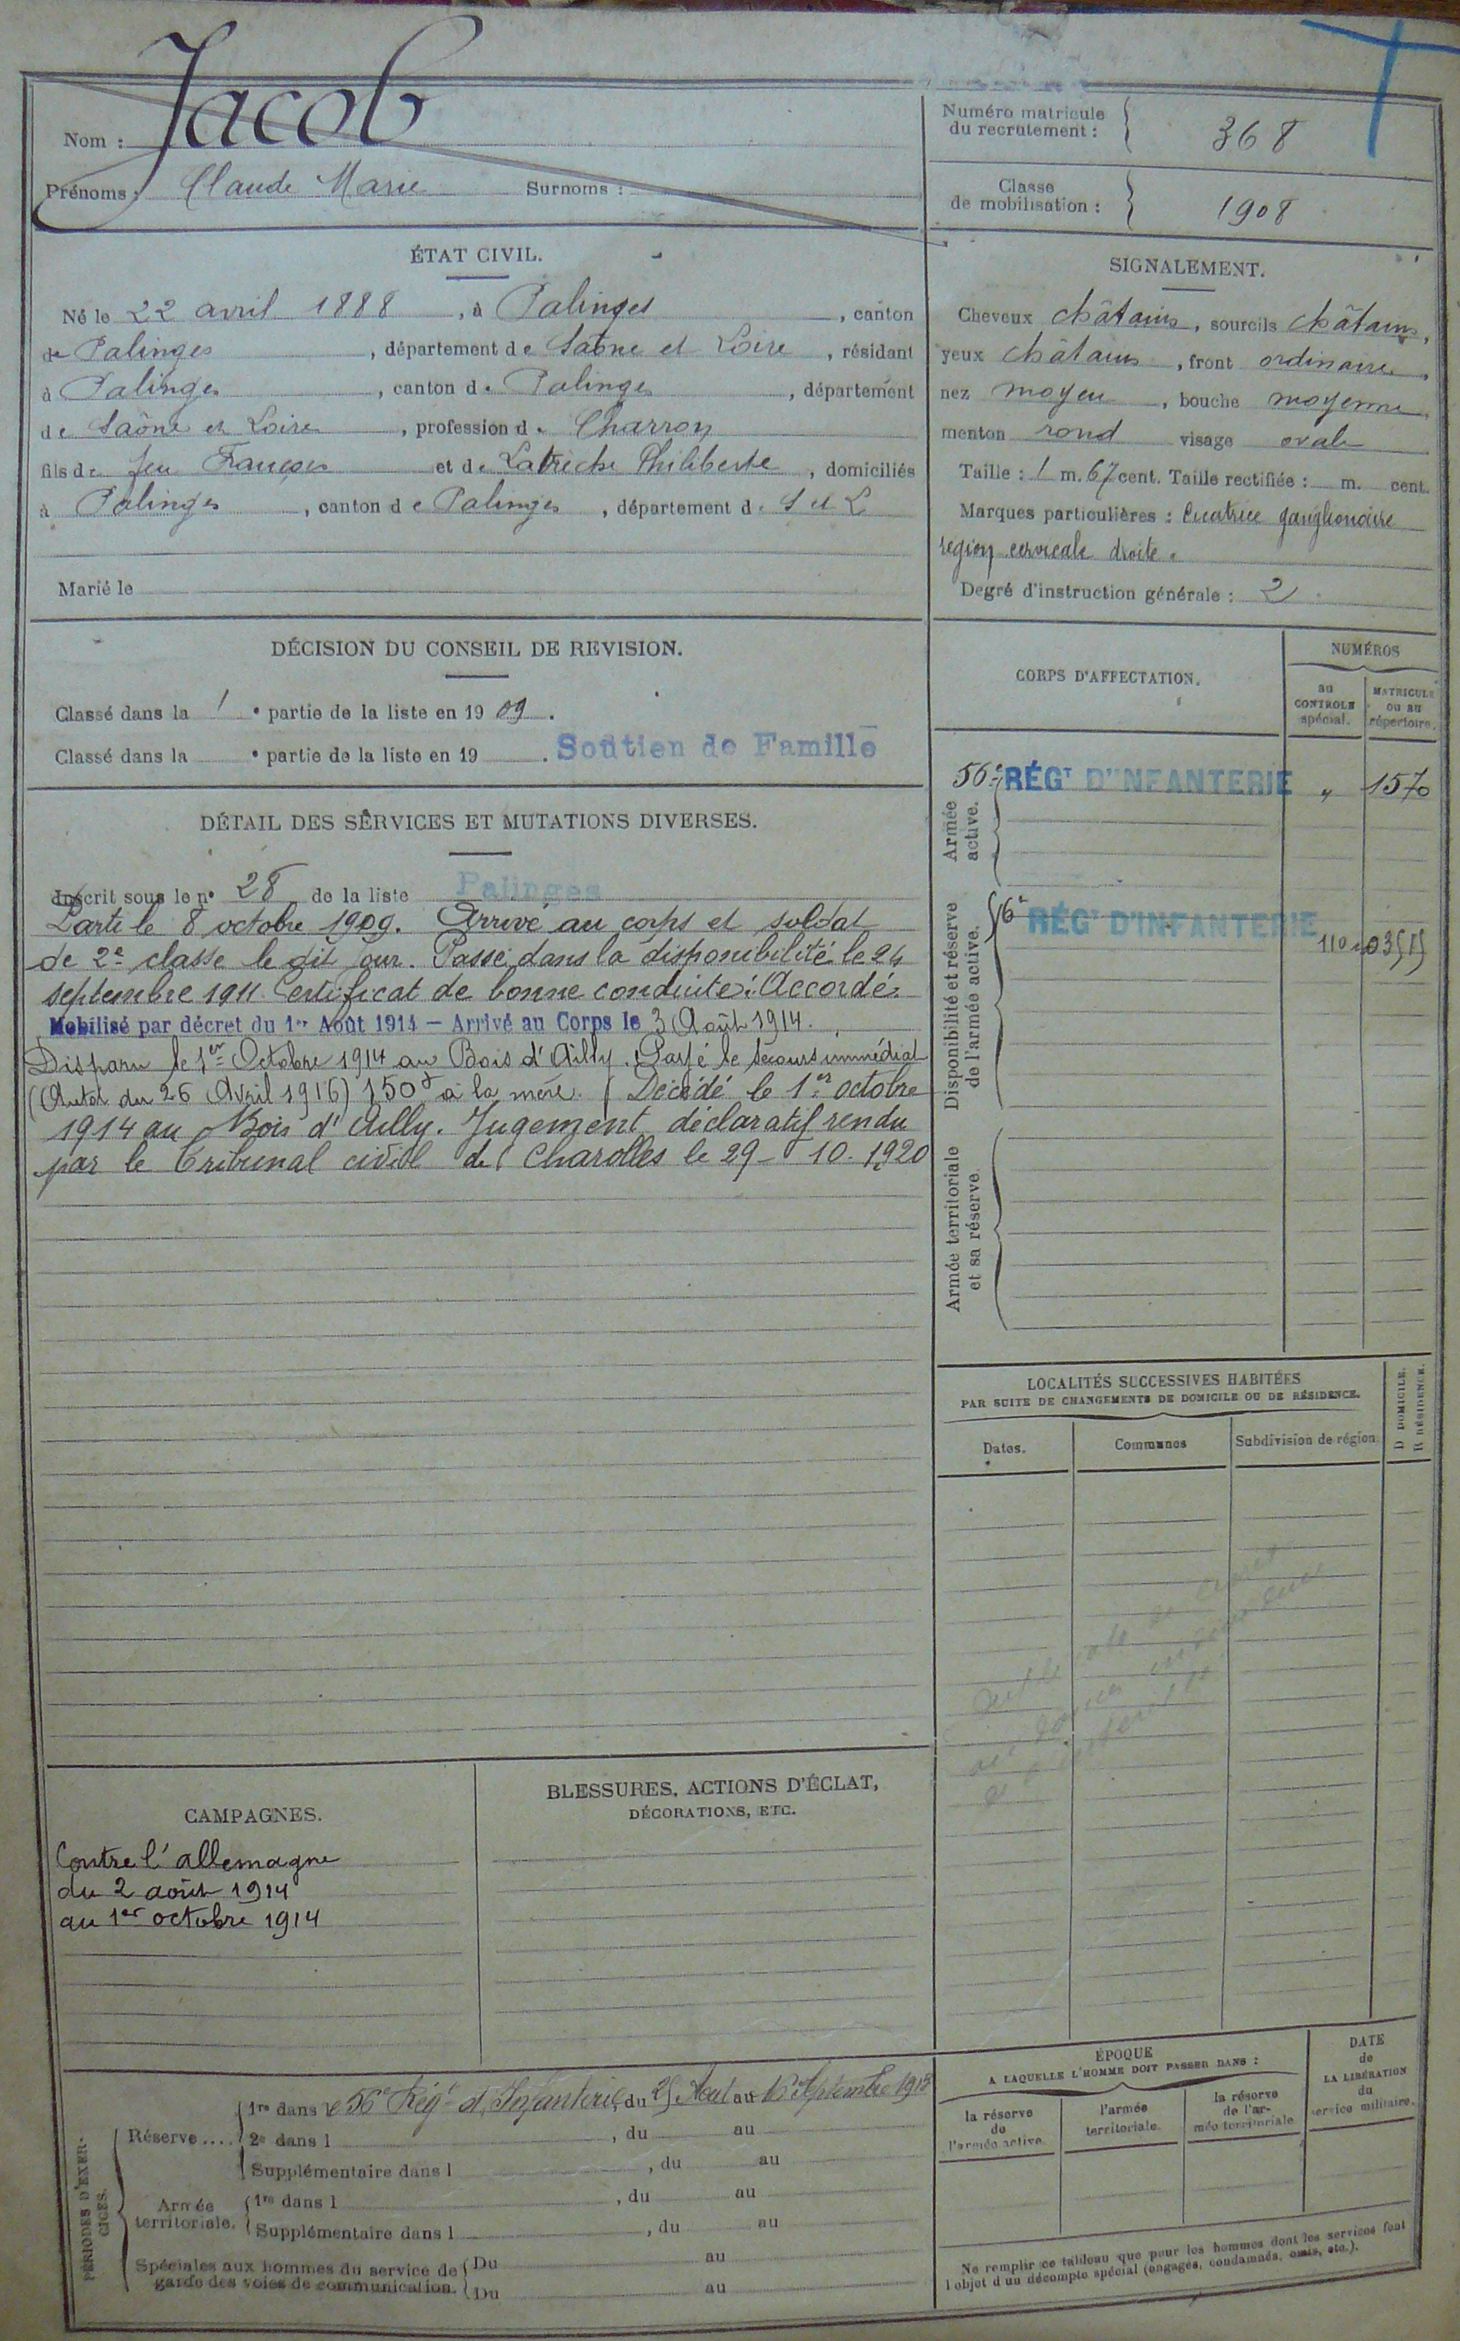 Nom : Jacob
Prénoms : Claude Marie Surnoms :
Numéro matricule
du recrutement : 368
Classe
de mobilisation : 1908
ÉTAT CIVIL.
Né le 22 avril 1888, à Palinges, canton
de Palinges, département de Saône et Loire, résidant
à Palinges, canton de Palinges, département
de Saône et Loire, profession de Charron
fils de feu François et de Latreche Philiberte, domiciliés
à Palinges, canton de Palinges, département de S et L
Marié le
SIGNALEMENT.
Cheveux châtains, sourcils châtains,
yeux châtains, front ordinaire,
nez moyen, bouche moyenne,
menton rond visage ovale
Taille : 1 m. 67 cent. Taille rectifiée : m. cent.
Marques particulières : Cicatrice ganglionaire
region cervicale droite.
Degré d'instruction générale : 2
DÉCISION DU CONSEIL DE REVISION.
Classé dans la 1e partie de la liste en 1909.
Classé dans la e partie de la liste en 19 . Soutien de Famille
DÉTAIL DES SERVICES ET MUTATIONS DIVERSES.
Inscrit sous le no 28 de la liste Palinges
Parti le 8 octobre 1909. Arrivé au corps et soldat
de 2e classe le dit jour. Passé dans la disponibilité le 24
septembre 1911. Certificat de bonne conduite : Accordé.
Mobilisé par décret du 1er Août 1914 – Arrivé au Corps le 3 Août 1914.
Disparu le 1er Octobre 1914 au Bois d'Ailly. Payé le secours immédiat
(Auton du 26 Avril 1916) 150f à la mère. Décédé le 1er octobre
1914 au Bois d'Ailly. Jugement déclaratif rendu
par le Tribunal civil de Charolles le 29-10-1920
CORPS D'AFFECTATION.
NUMÉROS
au
CONTROLE
spécial.
MATRICULE
ou au
répertoire.
Armée
active.
56e RÉGT D'INFANTERIE " 1570
Disponibilité et réserve
de l'armée active.
RÉGT D'INFANTERIE
Armée territoriale
et sa réserve.
LOCALITÉS SUCCESSIVES HABITÉES
PAR SUITE DE CHANGEMENTS DE DOMICILE OU DE RÉSIDENCE.
Dates.
Communes
Subdivision de région.
D DOMICILE.
R RÉSIDENCE.
CAMPAGNES.
Contre l'allemagne
du 2 août 1914
au 1er octobre 1914
BLESSURES, ACTIONS D'ÉCLAT,
DÉCORATIONS, ETC.
PÉRIODES D'EXER-
CICES.
Réserve....
1re dans le 56e Régt d'Infanterie, du 25 Aout au 16 Septembre 1913
2e dans l , du au
Supplémentaire dans l , du au
Armée
territoriale.
1re dans l , du au
Supplémentaire dans l , du au
Spéciales aux hommes du service de
garde des voies de communication.
Du au
Du au
ÉPOQUE
A LAQUELLE L'HOMME DOIT PASSER DANS :
la réserve
de
l'armée active.
l'armée
territoriale.
la réserve
de l'ar-
mée territoriale
DATE
de
LA LIBÉRATION
du
service militaire.
Ne remplir ce tableau que pour les hommes dont les services font
l'objet d'un décompte spécial (engagés, condamnés, omis, etc.).